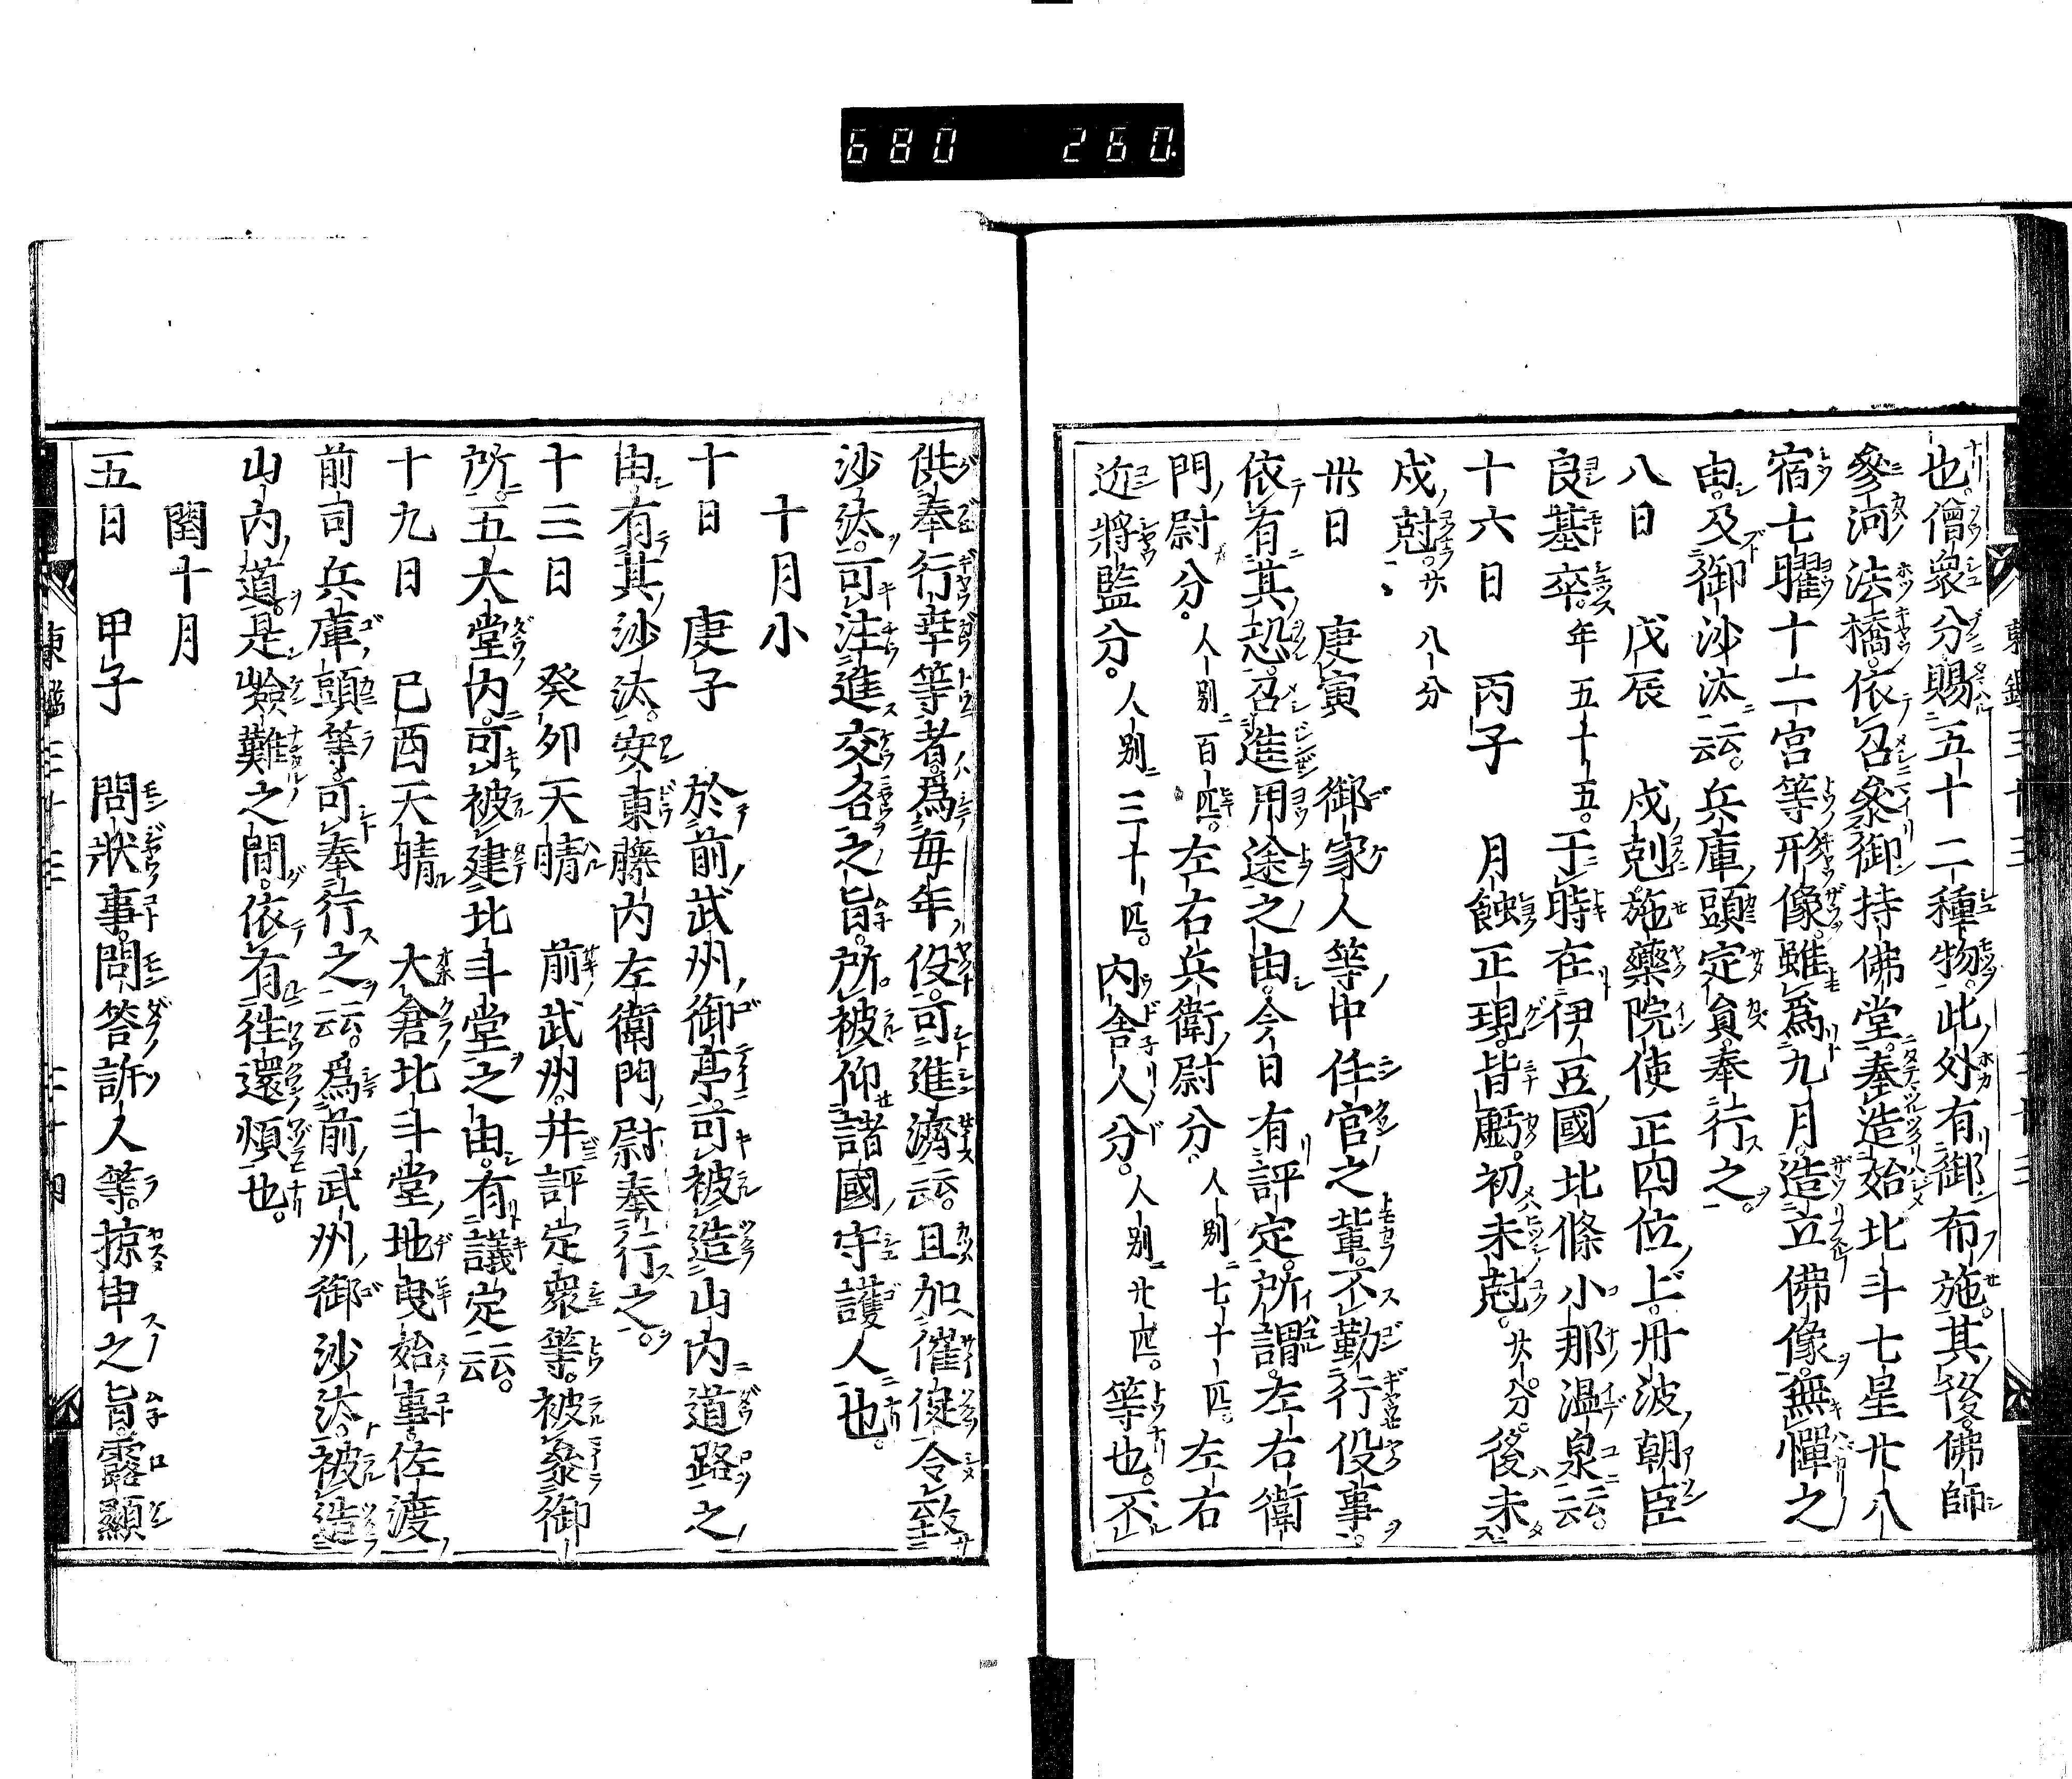 680 260
也。僧衆分賜五十二種物。此外有御布施。其後。佛師
參河法橋。依召參御持佛堂奉造始北斗七星廿八
宿七曜十二宮等形像。雖爲九月。造立佛像。無憚之
由。及御沙汰云云。兵庫頭定員。奉行之。
八日 戊辰 戌剋。施藥院使正四位上。丹波朝臣
良基卒。年五十五。于時在伊豆國北條小那温泉云云。
十六日 丙子 月蝕正現。皆虧。初未尅。廿六分。後未
戌尅。廿八分
卅日 庚寅 御家人等中任官之輩。不勤行役事。
依有其恐。召進用途之由。今日有評定。所謂。左右衛
門尉分。人別百匹。左右兵衛尉分。人別七十匹。左右
近將監分。人別三十匹。内舎人分。人別廿匹。等也。不
供奉行幸等者。爲毎年役。可進濟云云。且加催促。令致
沙汰。可注進交名之旨。所被仰諸國守護人也。
十月小
十日 庚子 於前武州御亭。可被造山内道路之
由。有其沙汰。安東藤内左衛門尉奉行之。
十三日 癸卯天晴 前武州。并評定衆等。被參御
所。五大堂内。可被建北斗堂之由。有議定云云。
十九日 己酉天晴 大倉北斗堂地曳始事。佐渡
前司兵庫頭等。可奉行之云云。爲前武州御沙汰。被造
山内道。是嶮難之間。依有往還煩也。
閏十月
五日 甲子 問狀事。問答訴人等。掠申之旨。露顯